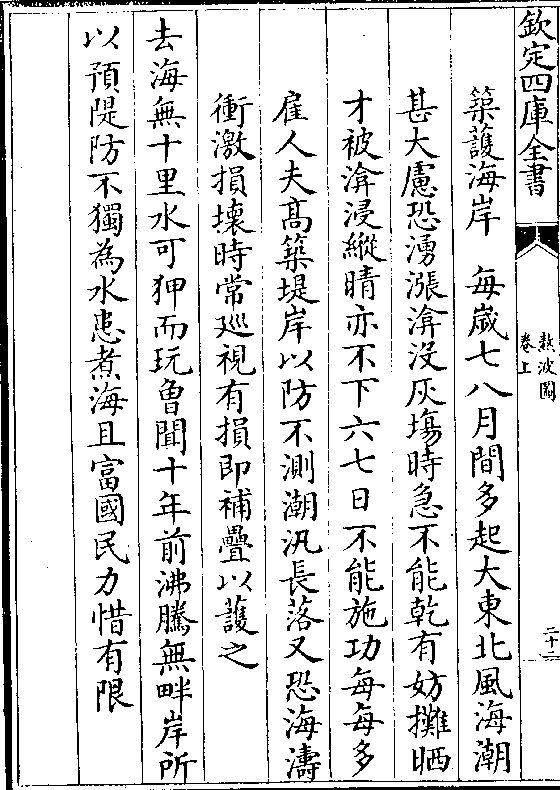 欽定四庫全書
熬波圖
卷上
二十二
築護海岸 毎嵗七八月間多起大東北風海潮
甚大慮恐湧漲渰没灰塲時急不能乾有妨攤晒
才被渰浸縱晴亦不下六七日不能施功毎毎多
雇人夫髙築堤岸以防不測潮汛長落又恐海濤
衝激損壊時常廵視有損即補疊以護之
去海無十里水可狎而玩曽聞十年前沸騰無畔岸所
以預隄防不獨為水患煮海且富國民力惜有限